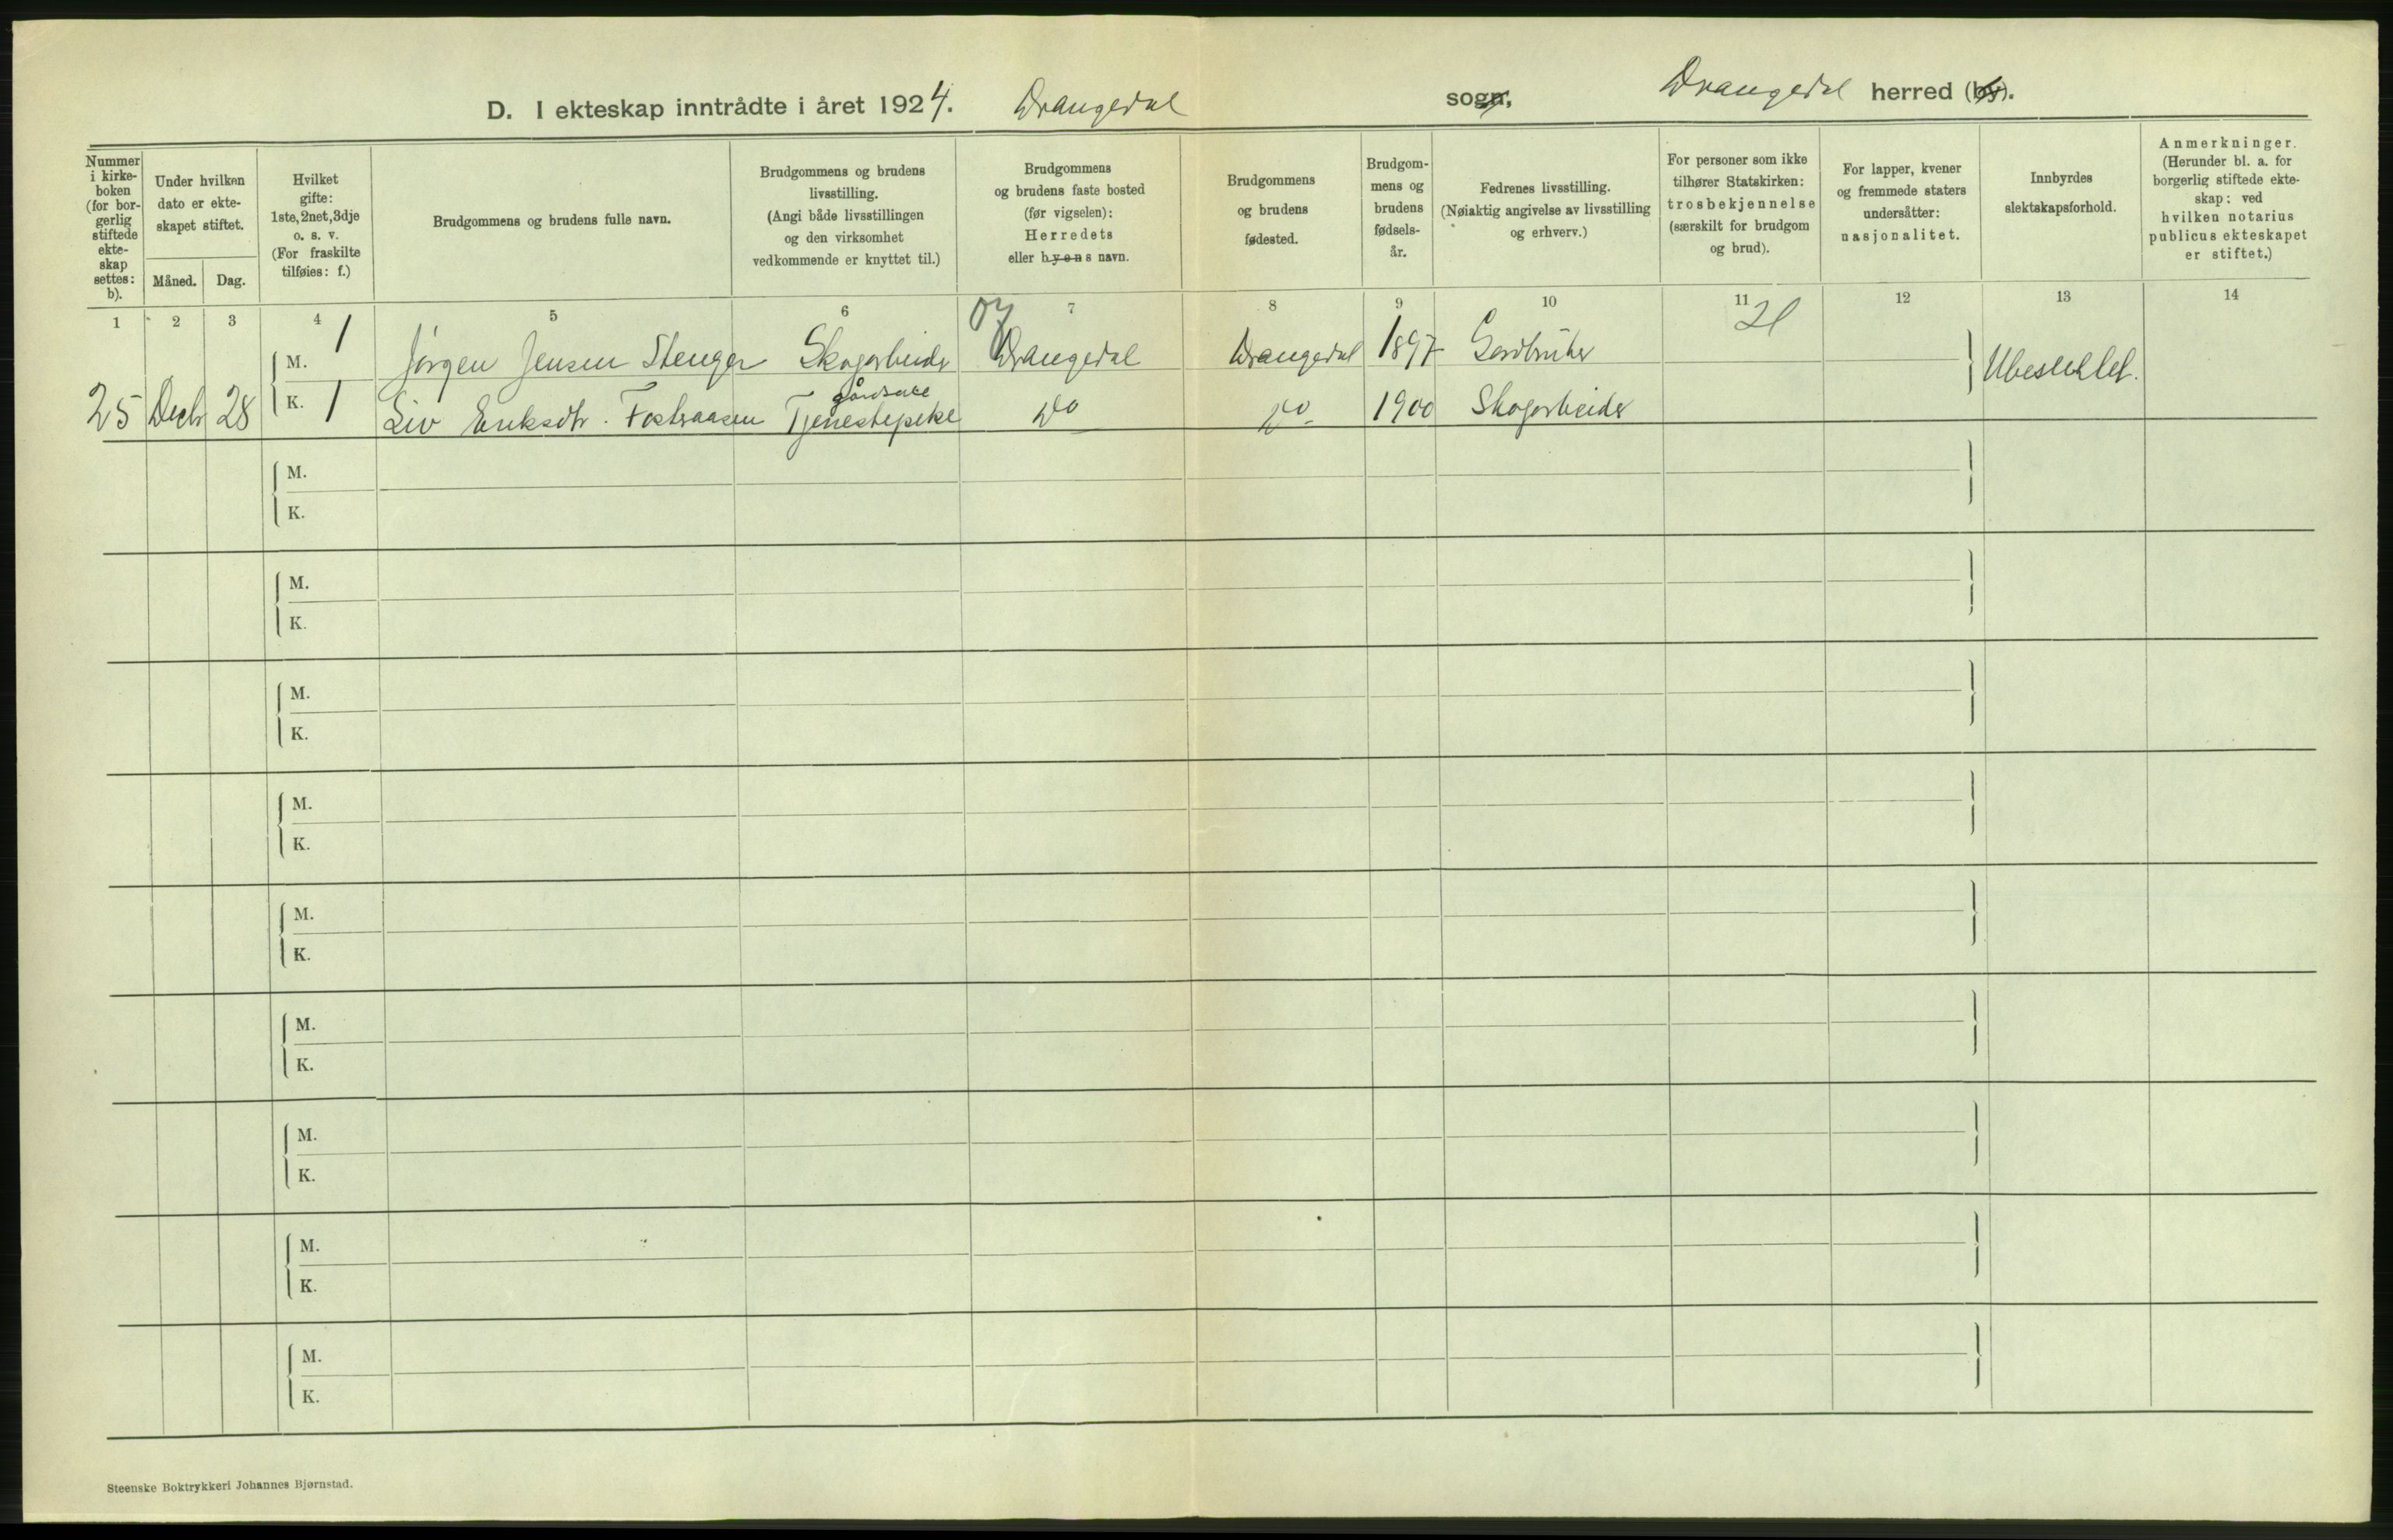 D. I ekteskap inntrådte i året 1924. Drangedal sogn, Drangedal herred (by).
Nummer i kirke-boken (for bor-gerlig stiftede ekte-skap settes: b).
Under hvilken dato er ekte-skapet stiftet.
Måned. Dag.
Hvilket gifte: 1ste, 2net, 3dje o. s. v. (For fraskilte tilføies: f.)
Brudgommens og brudens fulle navn.
Brudgommens og brudens livsstilling. (Angi både livsstillingen og den virksomhet vedkommende er knyttet til.)
Brudgommens og brudens faste bosted (før vigselen): Herredets eller byens navn.
Brudgommens og brudens fødested.
Brudgom-mens og brudens fødsels-år.
Fedrenes livsstilling. (Nøiaktig angivelse av livsstilling og erhverv.)
For personer som ikke tilhører Statskirken: trosbekjennelse (særskilt for brudgom og brud).
For lapper, kvener og fremmede staters undersåtter: nasjonalitet.
Innbyrdes slektskapsforhold.
Anmerkninger. (Herunder bl. a. for borgerlig stiftede ekte-skap: ved hvilken notarius publicus ekteskapet er stiftet.)
1 2 3 4 5 6 7 8 9 10 11 12 13 14
07 21
M. 1 Jørgen Jensen Stenger Skogarbeider Drangedal Drangedal 1897 Gardbruker Ubeslektet.
gårdsarb
25 Decbr 28 K. 1 Liv Eriksdtr. Fostvaasen Tjenestepike Do Do 1900 Skogarbeider
M.
K.
M.
K.
M.
K.
M.
K.
M.
K.
M.
K.
M.
K.
M.
K.
M.
K.
Steenske Boktrykkeri Johannes Bjørnstad.